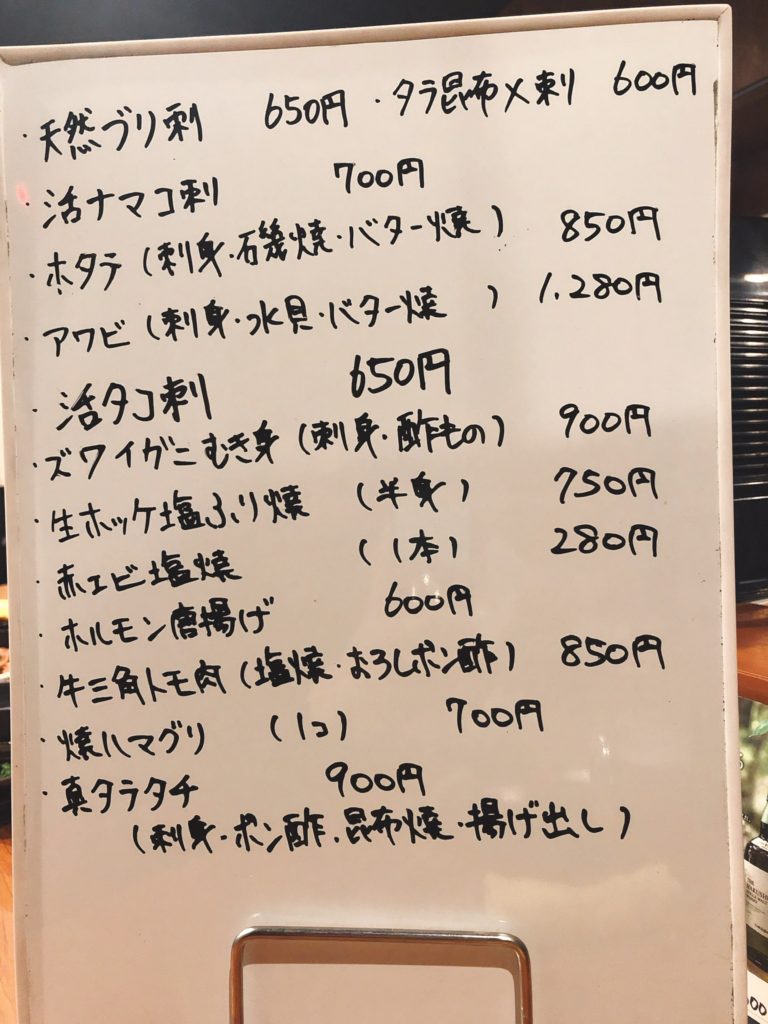 ・天然ブリ刺 650円 ・タラ昆布〆刺 600円
・活ナマコ刺 700円
・ホタテ(刺身・磯焼・バター焼) 850円
・アワビ(刺身・水貝・バター焼 ) 1.280円
・活タコ刺 650円
・ズワイガニむき身(刺身・酢もの) 900円
・生ホッケ塩ふり焼 (半身) 750円
・赤エビ塩焼 (1本) 280円
・ホルモン唐揚げ 600円
・牛三角トモ肉(塩焼・おろしポン酢) 850円
・焼ハマグリ (1コ) 700円
・真タラタチ 900円
(刺身・ポン酢・昆布焼・揚げ出し)